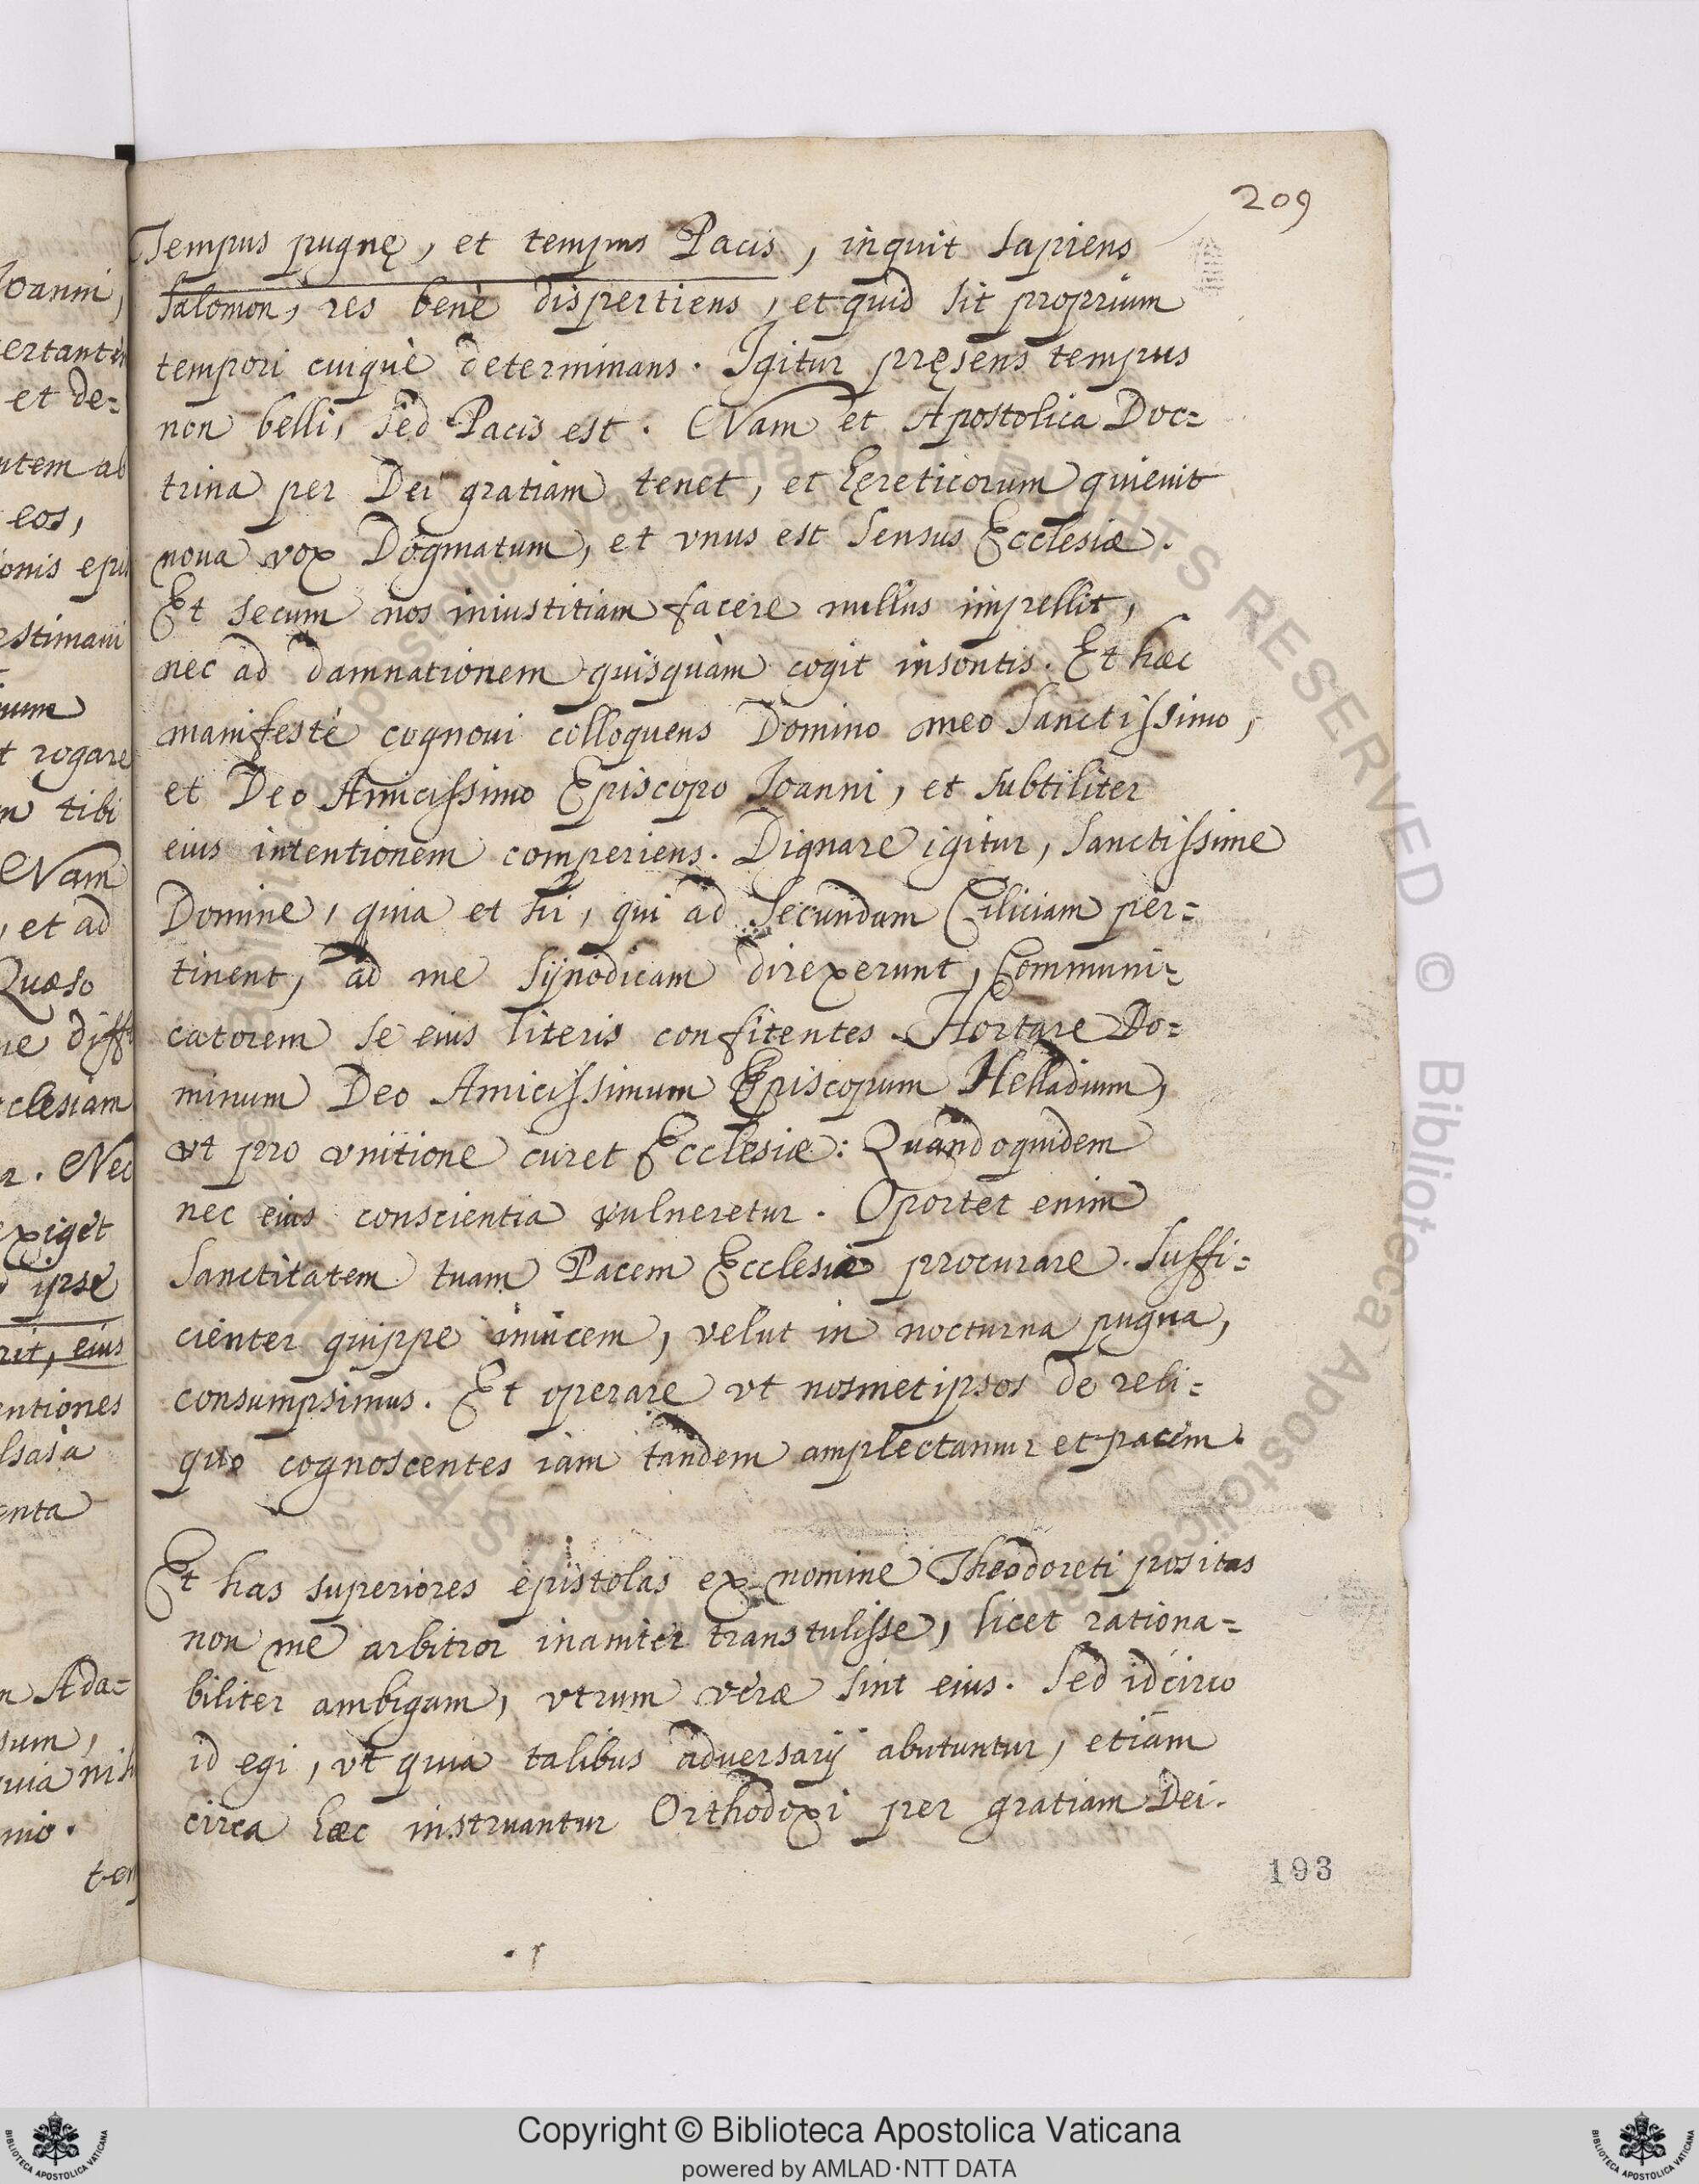 209
Tempus pugnę, et tempus Pacis, inquit sapiens
Salomon, res benè dispertiens, et quid sit proprium
tempori cuiquè determinans. Igitur pręsens tempus
non belli, sed Pacis est. Nam et Apostolica Doc=
trina per Dei gratiam tenet, et hęreticorum quieuit
noua vox Dogmatum, et vnus est sensus Ecclesiæ.
Et secum nos iniustitiam facere nullus impellit,
nec ad damnationem quisquàm cogit insontis. Et hæc
manifestè cognoui colloquens Domino meo Sanctissimo,
et Deo Amicissimo Episcopo Ioanni, et subtiliter
eius intentionem comperiens. Dignare igitur, Sanctissime
Domine, quia et hi, qui ad Secundam Ciliciam per=
tinent, ad me synodicam direxerunt, Communi=
catorem se eius literis confitentes. Hortare Do=
minum Deo Amicissimum Episcopum Helladium,
vt pro vnitione curet Ecclesiæ: Quandoquidem
nec eius conscientia vulneretur. Oportet enim
Sanctitatem tuam Pacem Ecclesiæ procurare. Suffi=
cienter quippe inuicem, velut in nocturna pugna,
consumpsimus. Et operare vt nosmetipsos de reli=
quo cognoscentes iam tandem amplectamur et pacem.
Et has superiores epistolas ex nomine Theodoreti positas
non me arbitror inaniter transtulisse, licet rationa=
biliter ambigam, vtrum veræ sint eius. Sed idcirco
id egi, vt quia talibus adversarij abutuntur, etiam
circa hæc instruantur Orthodoxi per gratiam Dei.
193
Ioanni,
et de=
eos,
t rogare
tibi
Nam
, et ad
Quæso
. Nec
ipse
rit, eius
Ada=
Copyright © Biblioteca Apostolica Vaticana
powered by AMLAD·NTT DATA